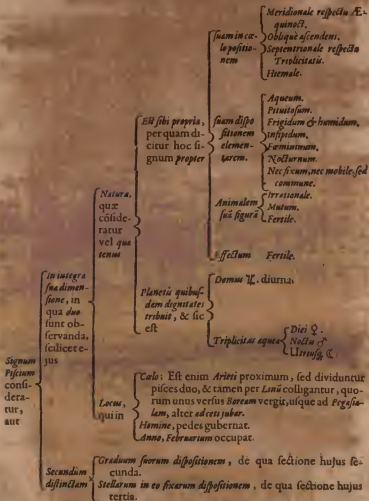 Signum
Piscium
consi-
dera-
tur,
aut
In integra
sua dimen-
sione, in
qua duo
sunt ob-
servanda,
scilicet e-
jus
Natura,
quæ
cōside-
ratur
vel qua
tenus
Est sibi propria,
per quam di-
citur hoc si-
gnum propter
suam in cæ-
lo positio-
nem
Meridionale respectu Æ-
quinoct.
Obliquè ascendens.
Septentrionale respectu
Triplicitatis.
Hiemale.
suam dispo
sitionem
elemen-
tarem.
Aqueum.
Pituitosum.
Frigidum & humidum.
Insipidum.
Fœmininum.
Nocturnum.
Nec fixum, nec mobile, sed
commune.
Animalem
suā figurā
Irrationale.
Mutum.
Fertile.
Effectum Fertile.
Planetis quibus-
dam dignitates
tribuit, & sic
est
Domus ♃. diurna.
Triplicitas aquea
Diei ♀.
Noctu ♂
Utriusq; ☾.
Locus,
qui in
Cælo: Est enim Arieti proximum, sed dividuntur
pisces duo, & tamen per Linū colligantur, quo-
rum unus versus Boream vergit, usque ad Pegasi a-
lam, alter ad ceti jubar.
Homine, pedes gubernat.
Anno, Februarium occupat.
Secundum
distinctam
Graduum suorum dispositionem, de qua sectione hujus se-
cunda.
Stellarum in eo fixarum dispositionem, de qua sectione hujus
tertia.